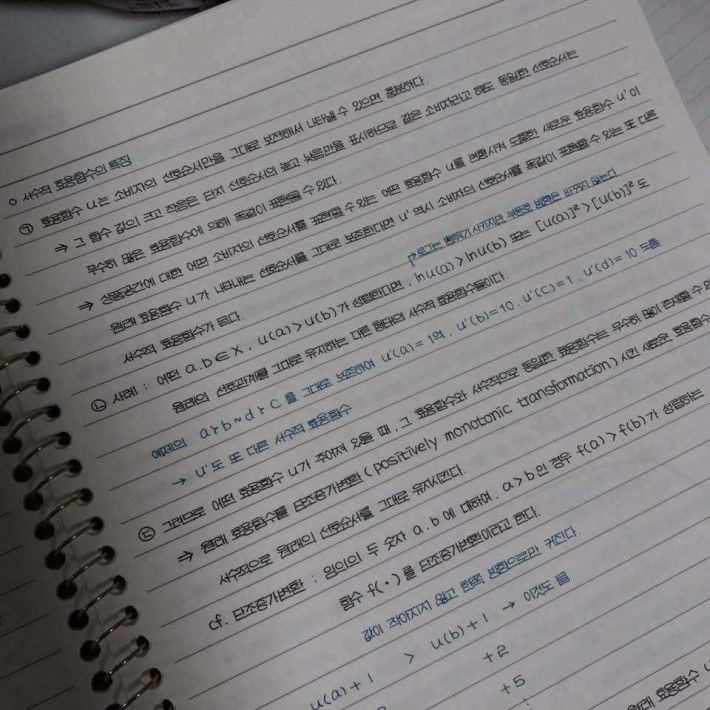 ○ 서수적 효용함수의 특징
㉠ 효용함수 u는 소비자의 선호순서만을 그대로 보존해서 나타낼 수 있으면 충분하다.
⇒ 그 함수 값의 크고 작음은 단지 선호순서의 높고 낮음만을 표시하므로 같은 소비자라고 해도 동일한 선호순서는
무수히 많은 효용함수에 의해 똑같이 표현될 수 있다.
⇒ 상품공간에 대한 어떤 소비자의 선호순서를 표현할 수 있는 어떤 효용함수 u를 변형시켜 도출한 새로운 효용함수 u'이
원래 효용함수 u가 나타내는 선호순서를 그대로 보존한다면 u' 역시 소비자의 선호순서를 똑같이 표현할 수 있는 또 다른
서수적 효용함수가 된다.
로그는 변하기 시키지만 부등호 방향은 바꾸지 않는다.
㉡ 사례 : 어떤 a.b∈X, u(a)>u(b)가 성립한다면, lnu(a)>lnu(b) 또는 [u(a)]²>[u(b)]²도
원래의 선호관계를 그대로 유지하는 다른 형태의 서수적 효용함수들이다.
예제의 arb~drc를 그대로 보존하여 u'(a)=18, u'(b)=10, u'(c)=1, u'(d)=10
→ u'도 또 다른 서수적 효용함수
㉢ 그러므로 어떤 효용함수 u가 주어져 있을 때, 그 효용함수와 서수적으로 동일한 효용함수는 무수히 많이 존재할 수 있
⇒ 원래 효용함수를 단조증가변환(positively monotonic transformation)시킨 새로운 효용함수
서수적으로 원래의 선호순서를 그대로 유지시킨다.
cf. 단조증가변환 : 임의의 두 숫자 a.b에 대하여, a>b인 경우 f(a)>f(b)가 성립하는
함수 f(·)를 단조증가변환이라고 한다.
값이 작아지지 않고 한쪽 방향으로만 커진다.
u(a)+1 > u(b)+1 → 이것도 됨
+2
+5
원래 효용함수 u